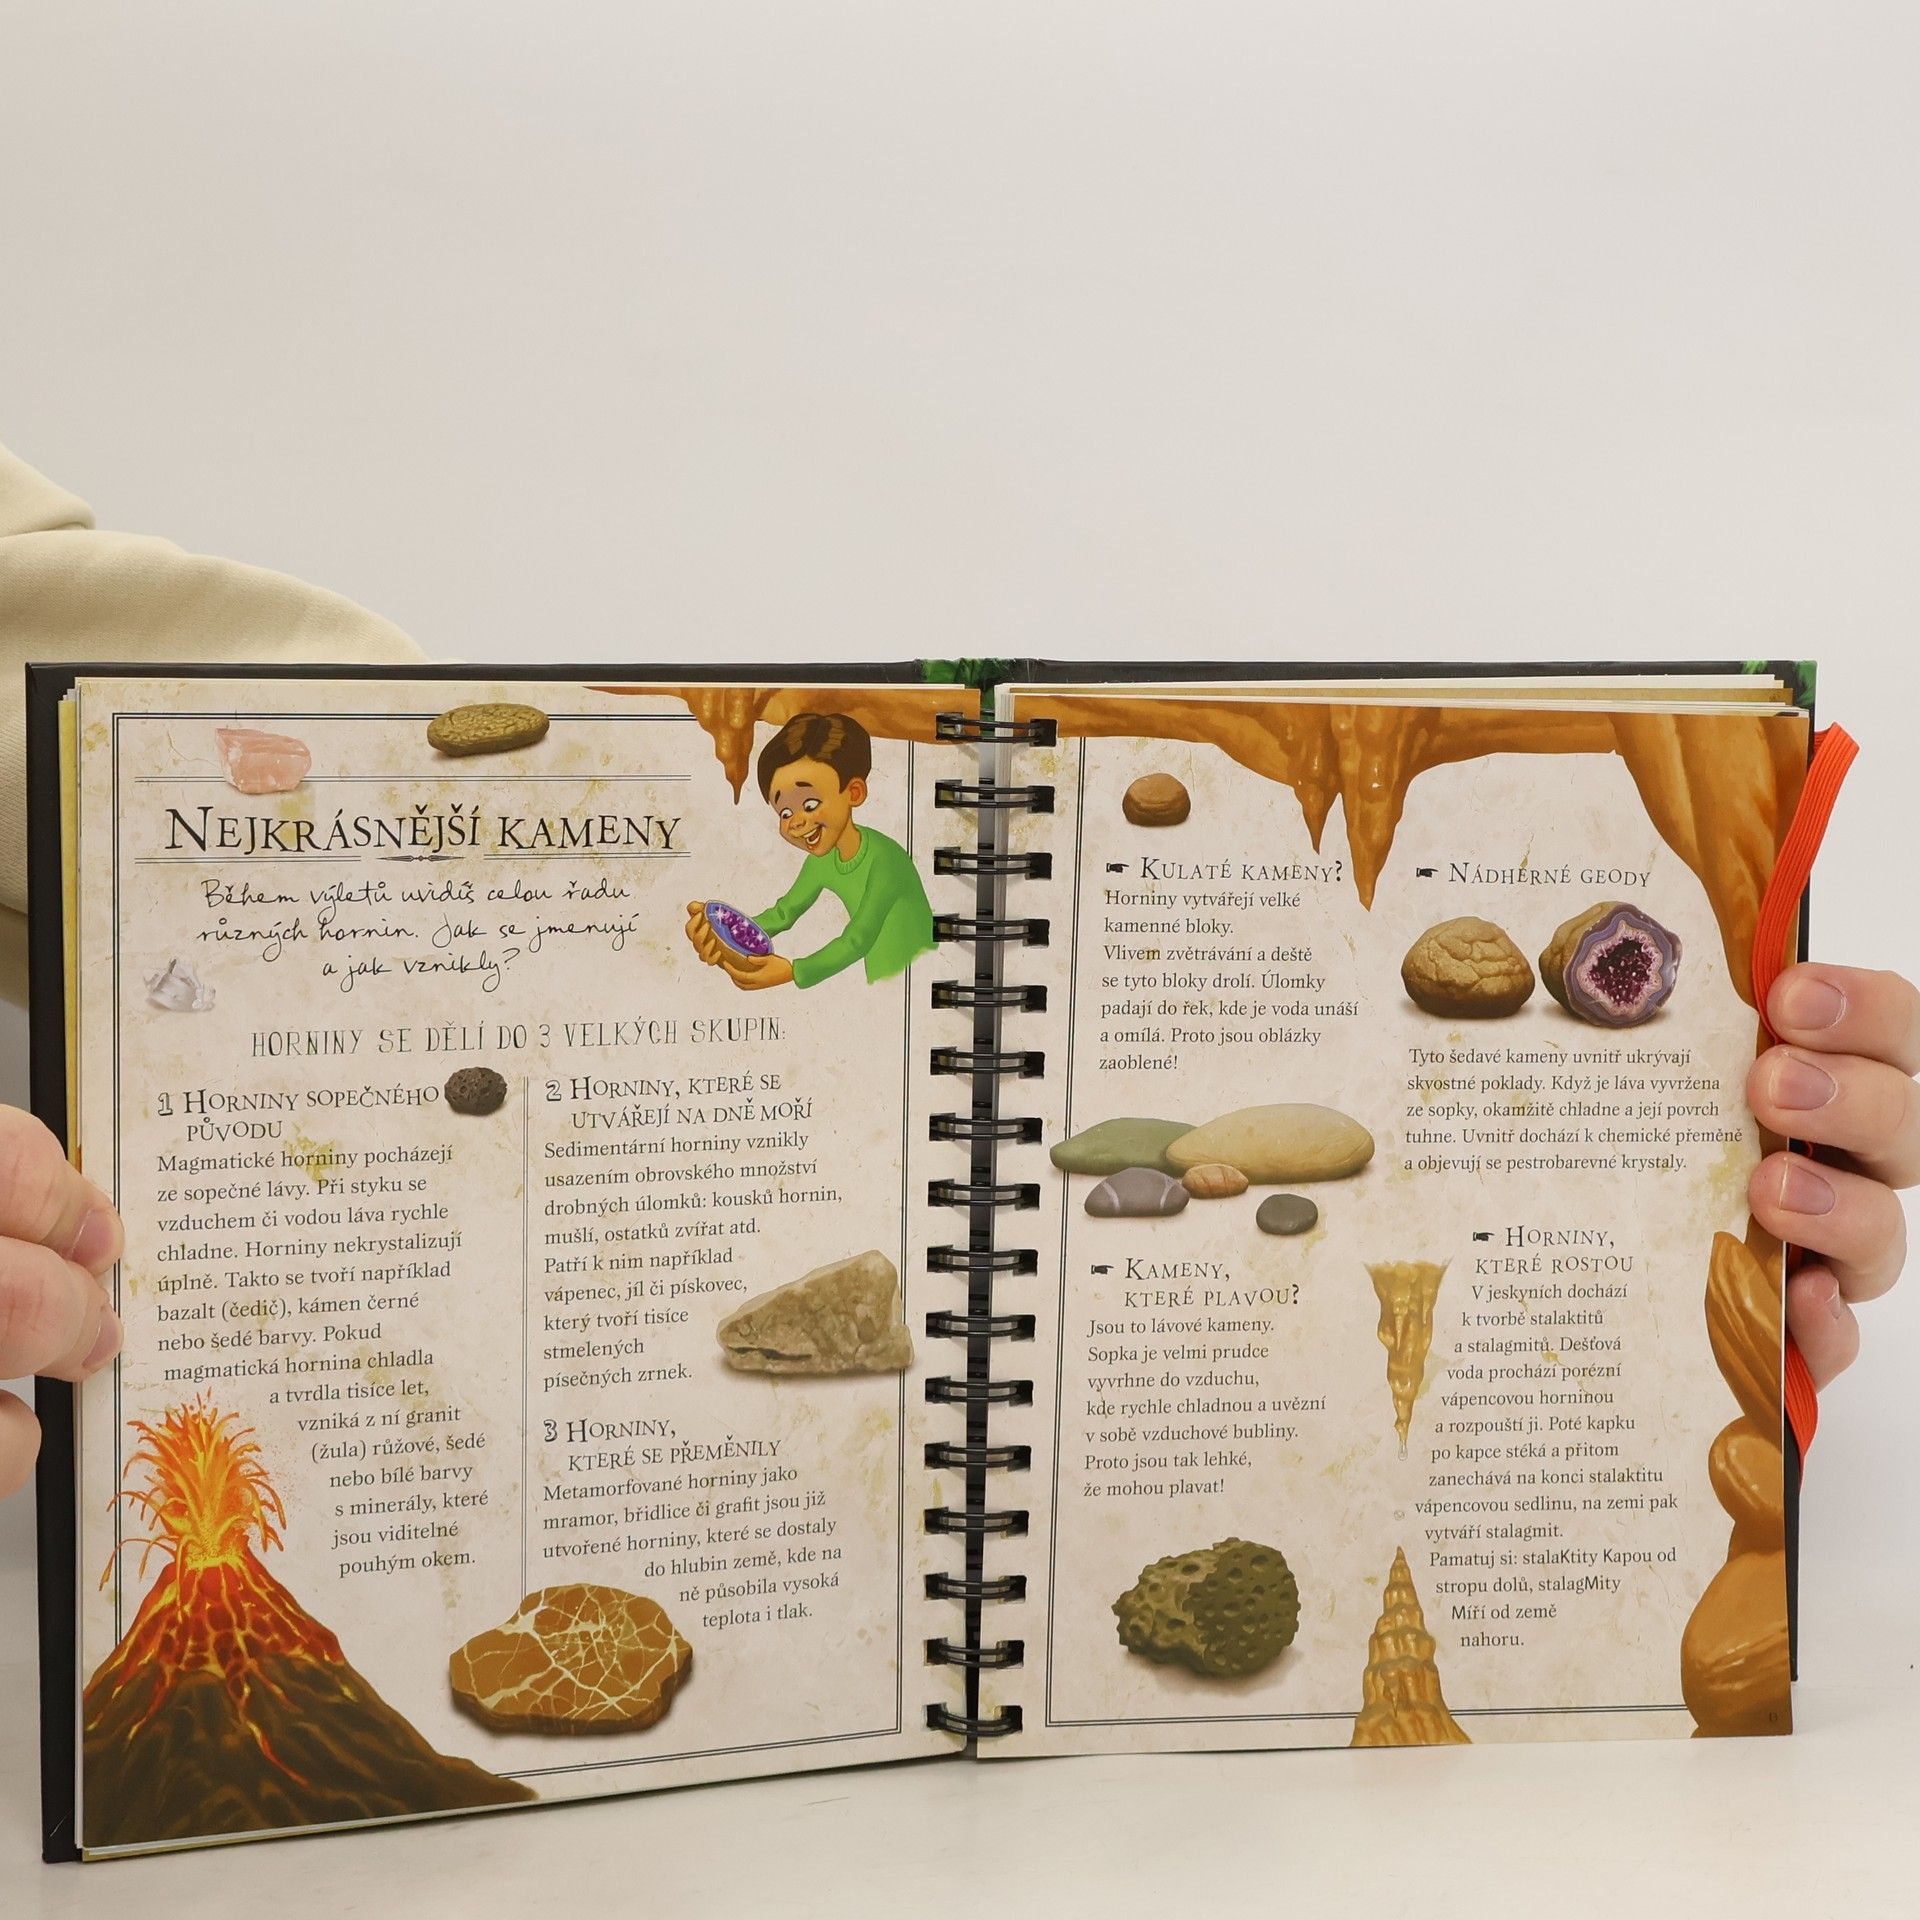 NEJKRÁSNĚJŠÍ KAMENY
Během výletů uvidíš celou řadu
různých hornin. Jak se jmenují
a jak vznikly?
HORNINY SE DĚLÍ DO 3 VELKÝCH SKUPIN:
1 HORNINY SOPEČNÉHO
PŮVODU
Magmatické horniny pocházejí
ze sopečné lávy. Při styku se
vzduchem či vodou láva rychle
chladne. Horniny nekrystalizují
úplně. Takto se tvoří například
bazalt (čedič), kámen černé
nebo šedé barvy. Pokud
magmatická hornina chladla
a tvrdla tisíce let,
vzniká z ní granit
(žula) růžové, šedé
nebo bílé barvy
s minerály, které
jsou viditelné
pouhým okem.
2 HORNINY, KTERÉ SE
UTVÁŘEJÍ NA DNĚ MOŘÍ
Sedimentární horniny vznikly
usazením obrovského množství
drobných úlomků: kousků hornin,
mušlí, ostatků zvířat atd.
Patří k nim například
vápenec, jíl či pískovec,
který tvoří tisíce
stmelených
písečných zrnek.
3 HORNINY,
KTERÉ SE PŘEMĚNILY
Metamorfované horniny jako
mramor, břidlice či grafit jsou již
utvořené horniny, které se dostaly
do hlubin země, kde na
ně působila vysoká
teplota i tlak.
KULATÉ KAMENY?
Horniny vytvářejí velké
kamenné bloky.
Vlivem zvětrávání a deště
se tyto bloky drolí. Úlomky
padají do řek, kde je voda unáší
a omílá. Proto jsou oblázky
zaoblené!
KAMENY,
KTERÉ PLAVOU?
Jsou to lávové kameny.
Sopka je velmi prudce
vyvrhne do vzduchu,
kde rychle chladnou a uvězní
v sobě vzduchové bubliny.
Proto jsou tak lehké,
že mohou plavat!
NÁDHERNÉ GEODY
Tyto šedavé kameny uvnitř ukrývají
skvostné poklady. Když je láva vyvržena
ze sopky, okamžitě chladne a její povrch
tuhne. Uvnitř dochází k chemické přeměně
a objevují se pestrobarevné krystaly.
HORNINY,
KTERÉ ROSTOU
V jeskyních dochází
k tvorbě stalaktitů
a stalagmitů. Dešťová
voda prochází porézní
vápencovou horninou
a rozpouští ji. Poté kapku
po kapce stéká a přitom
zanechává na konci stalaktitu
vápencovou sedlinu, na zemi pak
vytváří stalagmit.
Pamatuj si: stalaKtity Kapou od
stropu dolů, stalagMity
Míří od země
nahoru.